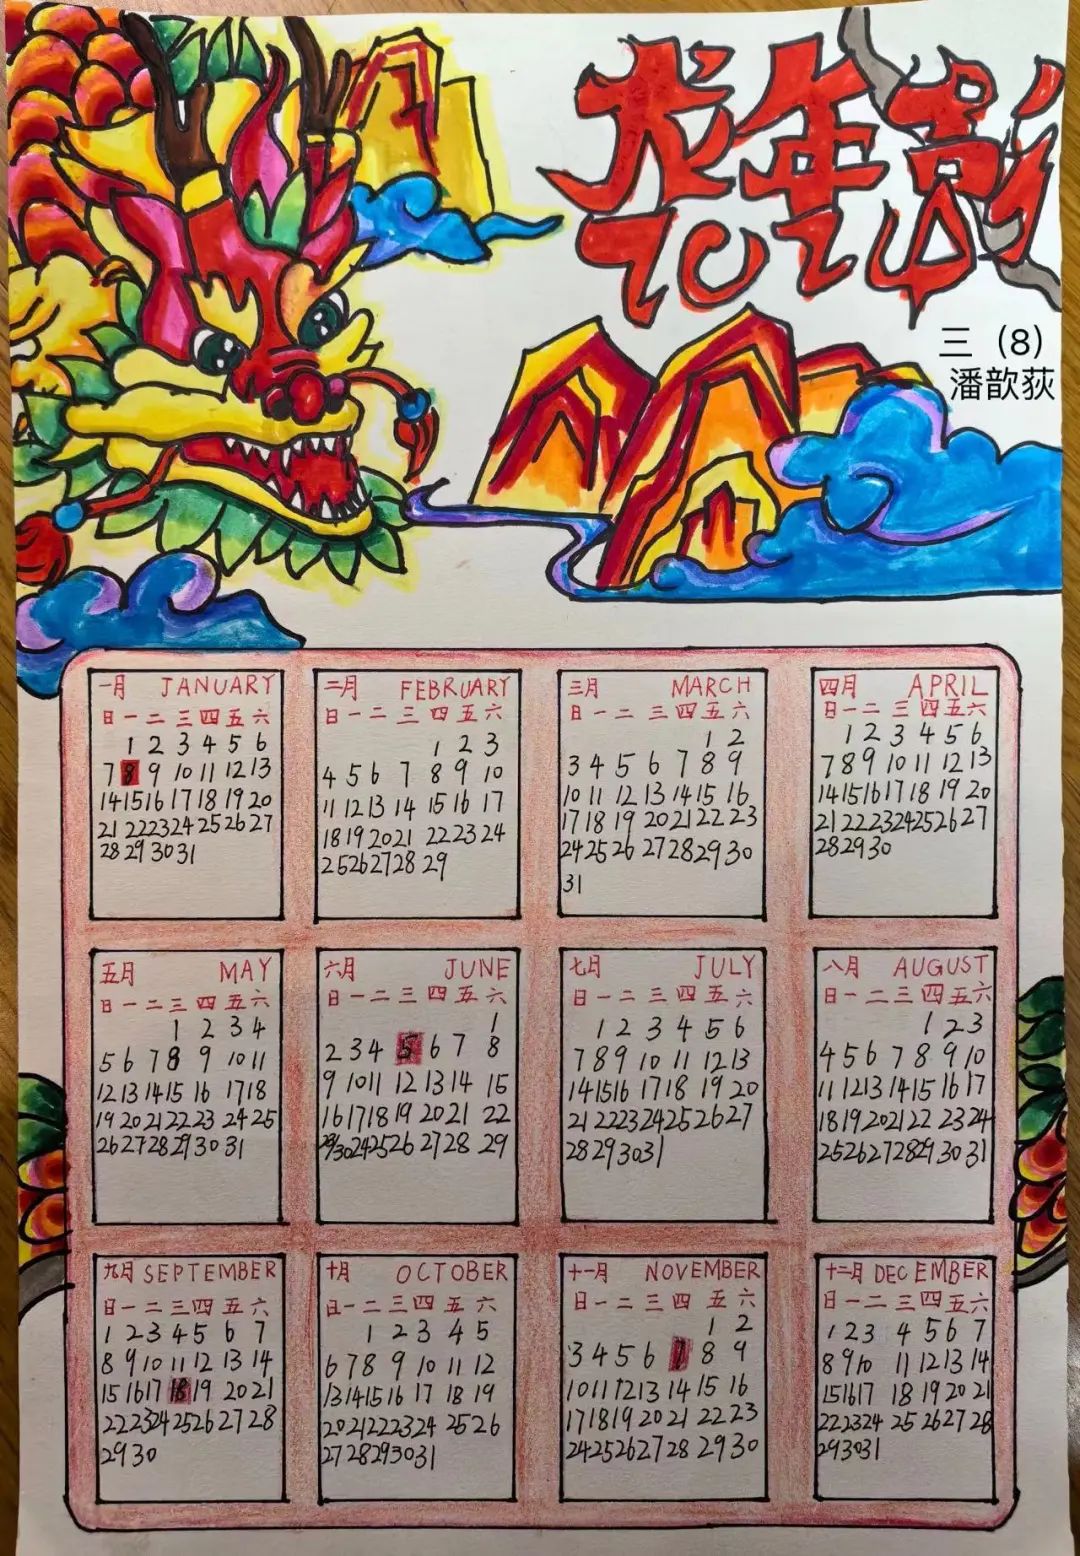 龙年
三（8）
潘歆荻
一月 JANUARY
日 一 二 三 四 五 六
1 2 3 4 5 6
7 8 9 10 11 12 13
14 15 16 17 18 19 20
21 22 23 24 25 26 27
28 29 30 31
二月 FEBRUARY
日 一 二 三 四 五 六
1 2 3
4 5 6 7 8 9 10
11 12 13 14 15 16 17
18 19 20 21 22 23 24
25 26 27 28 29
三月 MARCH
日 一 二 三 四 五 六
1 2
3 4 5 6 7 8 9
10 11 12 13 14 15 16
17 18 19 20 21 22 23
24 25 26 27 28 29 30
31
四月 APRIL
日 一 二 三 四 五 六
1 2 3 4 5 6
7 8 9 10 11 12 13
14 15 16 17 18 19 20
21 22 23 24 25 26 27
28 29 30
五月 MAY
日 一 二 三 四 五 六
1 2 3 4
5 6 7 8 9 10 11
12 13 14 15 16 17 18
19 20 21 22 23 24 25
26 27 28 29 30 31
六月 JUNE
日 一 二 三 四 五 六
1
2 3 4 5 6 7 8
9 10 11 12 13 14 15
16 17 18 19 20 21 22
23/30 24 25 26 27 28 29
七月 JULY
日 一 二 三 四 五 六
1 2 3 4 5 6
7 8 9 10 11 12 13
14 15 16 17 18 19 20
21 22 23 24 25 26 27
28 29 30 31
八月 AUGUST
日 一 二 三 四 五 六
1 2 3
4 5 6 7 8 9 10
11 12 13 14 15 16 17
18 19 20 21 22 23 24
25 26 27 28 29 30 31
九月 SEPTEMBER
日 一 二 三 四 五 六
1 2 3 4 5 6 7
8 9 10 11 12 13 14
15 16 17 18 19 20 21
22 23 24 25 26 27 28
29 30
十月 OCTOBER
日 一 二 三 四 五 六
1 2 3 4 5
6 7 8 9 10 11 12
13 14 15 16 17 18 19
20 21 22 23 24 25 26
27 28 29 30 31
十一月 NOVEMBER
日 一 二 三 四 五 六
1 2
3 4 5 6 7 8 9
10 11 12 13 14 15 16
17 18 19 20 21 22 23
24 25 26 27 28 29 30
十二月 DECEMBER
日 一 二 三 四 五 六
1 2 3 4 5 6 7
8 9 10 11 12 13 14
15 16 17 18 19 20 21
22 23 24 25 26 27 28
29 30 31